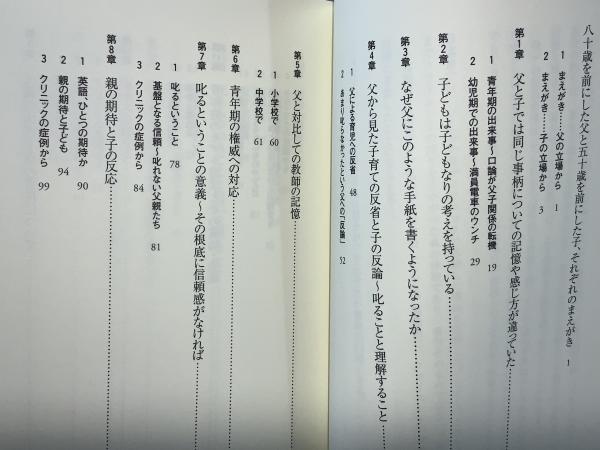 八十歳を前にした父と五十歳を前にした子、それぞれのまえがき 1
1 まえがき……父の立場から 1
2 まえがき……子の立場から 3
第1章 父と子では同じ事柄についての記憶や感じ方が違っていた……
1 青年期の出来事~口論が父子関係の転機 19
2 幼児期での出来事~満員電車のウンチ 29
第2章 子どもは子どもなりの考えを持っている……
第3章 なぜ父にこのような手紙を書くようになったか……
第4章 父から見た子育ての反省と子の反論~叱ることと理解すること……
1 父による育児への反省 48
2 あまり叱らなかったという父への「反論」 52
第5章 父と対比しての教師の記憶……
1 小学校で 60
2 中学校で 61
第6章 青年期の権威への対応……
第7章 叱るということの意義~その根底に信頼感がなければ……
1 叱るということ 78
2 基盤となる信頼~叱れない父親たち 81
3 クリニックの症例から 84
第8章 親の期待と子の反応……
1 英語、ひとつの期待か 90
2 親の期待と子ども 94
3 クリニックの症例から 99